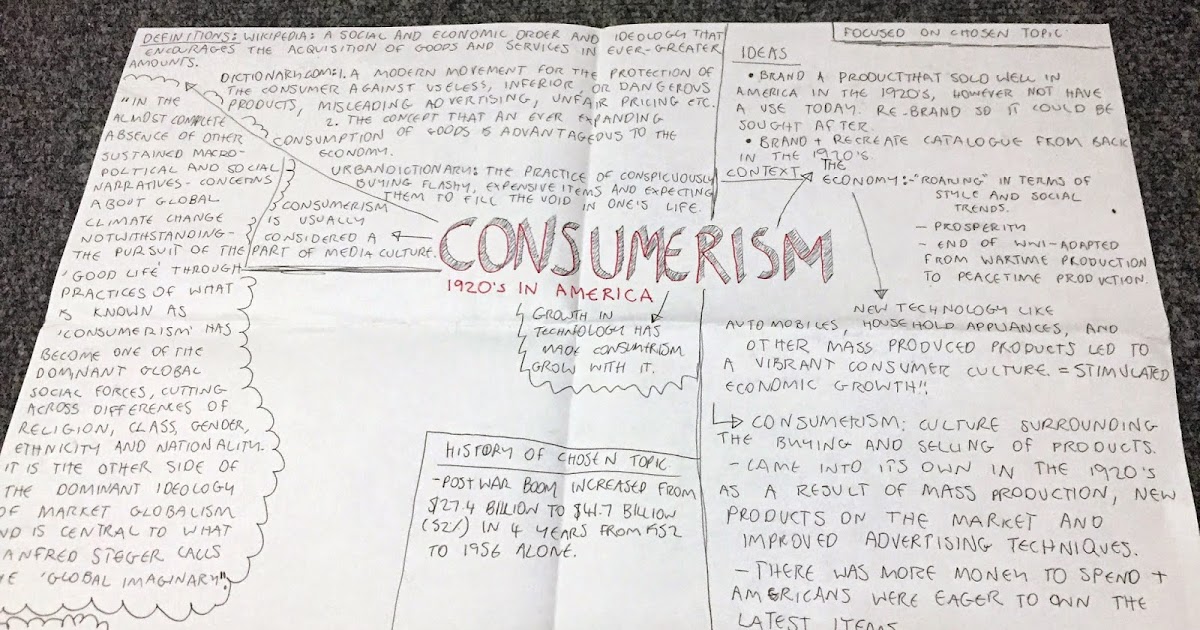 DEFINITIONS: WIKIPEDIA: A SOCIAL AND ECONOMIC ORDER AND IDEOLOGY THAT
ENCOURAGES THE ACQUISITION OF GOODS AND SERVICES IN EVER-GREATER
AMOUNTS.
DICTIONARY.COM: 1. A MODERN MOVEMENT FOR THE PROTECTION OF
THE CONSUMER AGAINST USELESS, INFERIOR, OR DANGEROUS
PRODUCTS, MISLEADING ADVERTISING, UNFAIR PRICING ETC.
2. THE CONCEPT THAT AN EVER EXPANDING
CONSUMPTION OF GOODS IS ADVANTAGEOUS TO THE
ECONOMY.
URBANDICTIONARY: THE PRACTICE OF CONSPICUOUSLY
BUYING FLASHY, EXPENSIVE ITEMS AND EXPECTING
THEM TO FILL THE VOID IN ONE'S LIFE.
"IN THE
ALMOST COMPLETE
ABSENCE OF OTHER
SUSTAINED MACRO-
POLITICAL AND SOCIAL
NARRATIVES - CONCERNS
ABOUT GLOBAL
CLIMATE CHANGE
NOTWITHSTANDING -
THE PURSUIT OF THE
'GOOD LIFE' THROUGH
PRACTICES OF WHAT
IS KNOWN AS
'CONSUMERISM' HAS
BECOME ONE OF THE
DOMINANT GLOBAL
SOCIAL FORCES, CUTTING
ACROSS DIFFERENCES OF
RELIGION, CLASS, GENDER,
ETHNICITY AND NATIONALITY.
IT IS THE OTHER SIDE OF
THE DOMINANT IDEOLOGY
OF MARKET GLOBALISM
ND IS CENTRAL TO WHAT
ANFRED STEGER CALLS
E 'GLOBAL IMAGINARY'."
CONSUMERISM
IS USUALLY
CONSIDERED A
PART OF MEDIA CULTURE.
CONSUMERISM
1920'S IN AMERICA
GROWTH IN
TECHNOLOGY HAS
MADE CONSUMERISM
GROW WITH IT.
HISTORY OF CHOSEN TOPIC
-POST WAR BOOM INCREASED FROM
$27.4 BILLION TO $41.7 BILLION
IN 4 YEARS FROM
TO 1956 ALONE.
FOCUSED ON CHOSEN TOPIC
IDEAS
• BRAND A PRODUCT THAT SOLD WELL IN
AMERICA IN THE 1920'S, HOWEVER NOT HAVE
A USE TODAY. RE-BRAND SO IT COULD BE
SOUGHT AFTER.
• BRAND + RECREATE CATALOGUE FROM BACK
IN THE 1920'S.
CONTEXT
THE
ECONOMY:-"ROARING" IN TERMS OF
STYLE AND SOCIAL
TRENDS.
- PROSPERITY
- END OF WWI-ADAPTED
FROM WARTIME PRODUCTION
TO PEACETIME PRODUCTION.
NEW TECHNOLOGY LIKE
AUTOMOBILES, HOUSEHOLD APPLIANCES, AND
OTHER MASS PRODUCED PRODUCTS LED TO
A VIBRANT CONSUMER CULTURE. = STIMULATED
ECONOMIC GROWTH!!
CONSUMERISM: CULTURE SURROUNDING
THE BUYING AND SELLING OF PRODUCTS.
- CAME INTO ITS OWN IN THE 1920'S
AS A RESULT OF MASS PRODUCTION, NEW
PRODUCTS ON THE MARKET AND
IMPROVED ADVERTISING TECHNIQUES.
- THERE WAS MORE MONEY TO SPEND +
AMERICANS WERE EAGER TO OWN THE
LATEST ITEMS